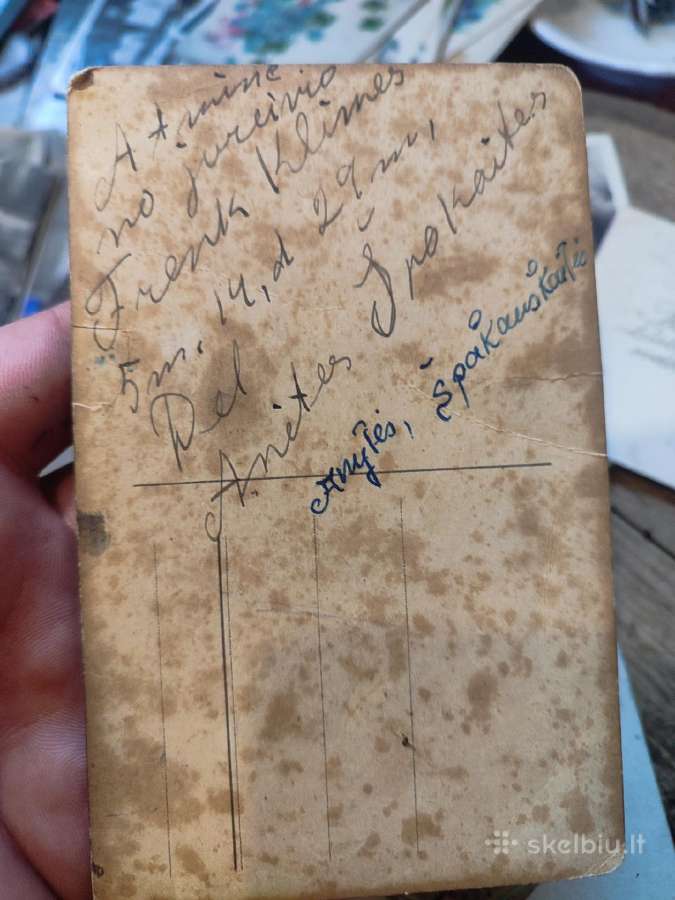 Atmine
no jurcivio
Frenk Klimes
5 m. 14, d 29 m,
Del
Anites Špokaites
Anytės, Špakauskaitės
skelbiu.lt